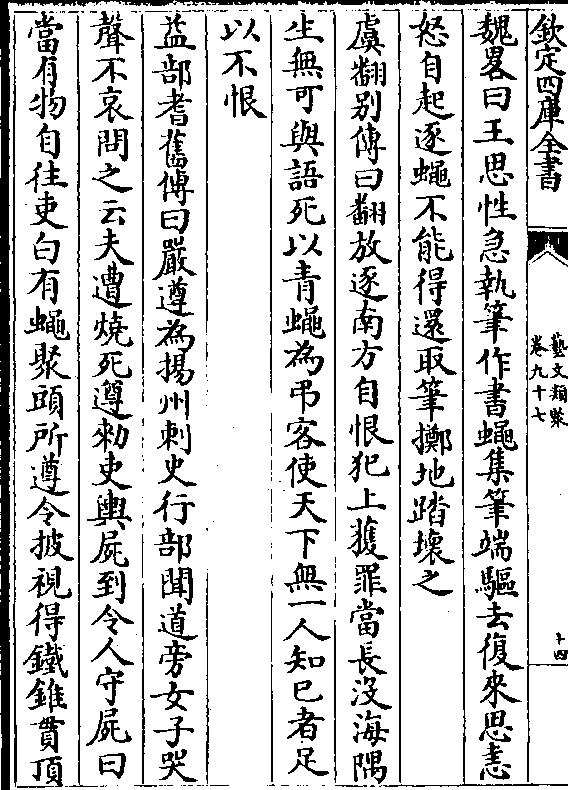 欽定四庫全書
藝文類聚
卷九十七
十四
魏畧曰王思性急執筆作書蠅集筆端驅去復來思恚
怒自起逐蠅不能得還取筆擲地踏壞之
虞翻别傳曰翻放逐南方自恨犯上獲罪當長没海隅
生無可與語死以青蠅為弔客使天下無一人知己者足
以不恨
益部耆舊傳曰嚴遵為揚州刺史行部聞道旁女子哭
聲不哀問之云夫遭燒死遵勑吏輿屍到令人守屍曰
當有物自往吏白有蠅聚頭所遵令披視得鐵錐貫頂